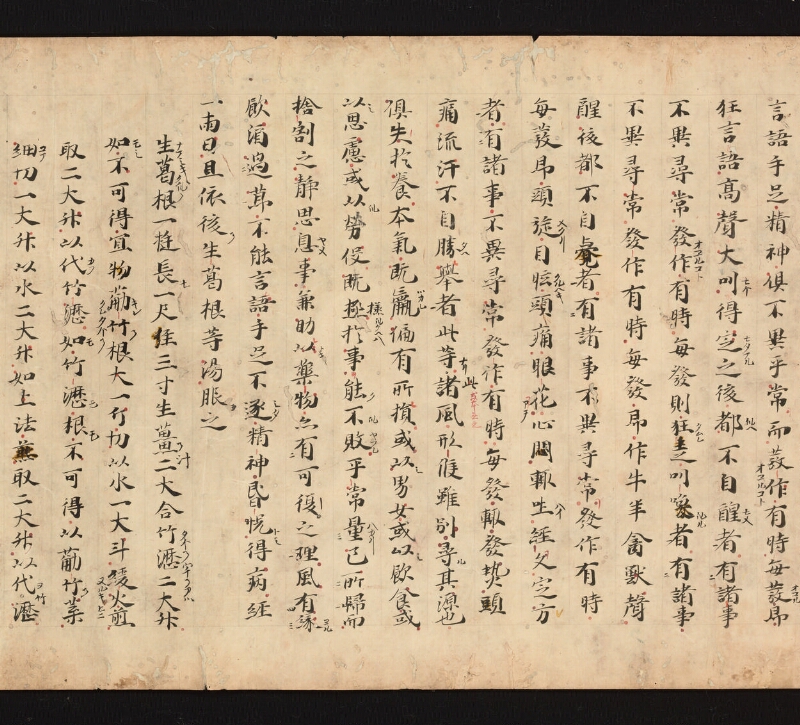 言語手足精神俱不異乎常而發作有時每發即
狂言語高聲大叫得定之後都不自醒者有諸事
不異尋常發作有時每發則狂走叫喚者有諸事
不異尋常發作有時每發即作牛羊禽獸聲
醒後都不自覺者有諸事不異尋常發作有時
每發即頭旋目眩頭痛眼花心悶輒吐經久定方
者有諸事不異尋常發作有時每發輒發熱頭
痛流汗不自勝舉者此等諸風形候雖別尋其源也
俱失於養本氣既羸偏有所損或以男女或以飲食或
以思慮或以勞役既極於事能不敗乎常量已所歸而
捨割之靜思息事兼助以藥物亦有可復之理風有緣
飲酒過節不能言語手足不遂精神昏恍得病經
一兩日且依後生葛根等湯服之
生葛根一挺長一尺徑三寸生薑汁二大合竹瀝二大升
如不可得宜物菊竹根大一斤切以水一大斗煖火煎
取二大升以代竹瀝如竹瀝根不可得以菊竹葉
細切一大升以水二大升如上法煎取二大升以代瀝